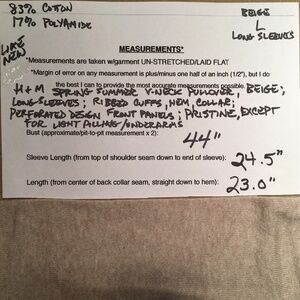 83% COTTON
17% POLYAMIDE
BEIGE
L
LONG SLEEVES
LIKE NEW
MEASUREMENTS*
*Measurements are taken w/garment UN-STRETCHED/LAID FLAT
*Margin of error on any measurement is plus/minus one half of an inch (1/2"), but I do
the best I can to provide the most accurate measurements possible.
H+M SPRING SUMMER V-NECK PULLOVER; BEIGE;
LONG SLEEVES; RIBBED CUFFS, HEM, COLLAR;
PERFORATED DESIGN FRONT PANELS; PRISTINE, EXCEPT
FOR LIGHT PILLING/UNDERARMS
Bust (approximate/pit-to-pit measurement x 2): 44"
Sleeve Length (from top of shoulder seam down to end of sleeve): 24.5"
Length (from center of back collar seam, straight down to hem): 23.0"